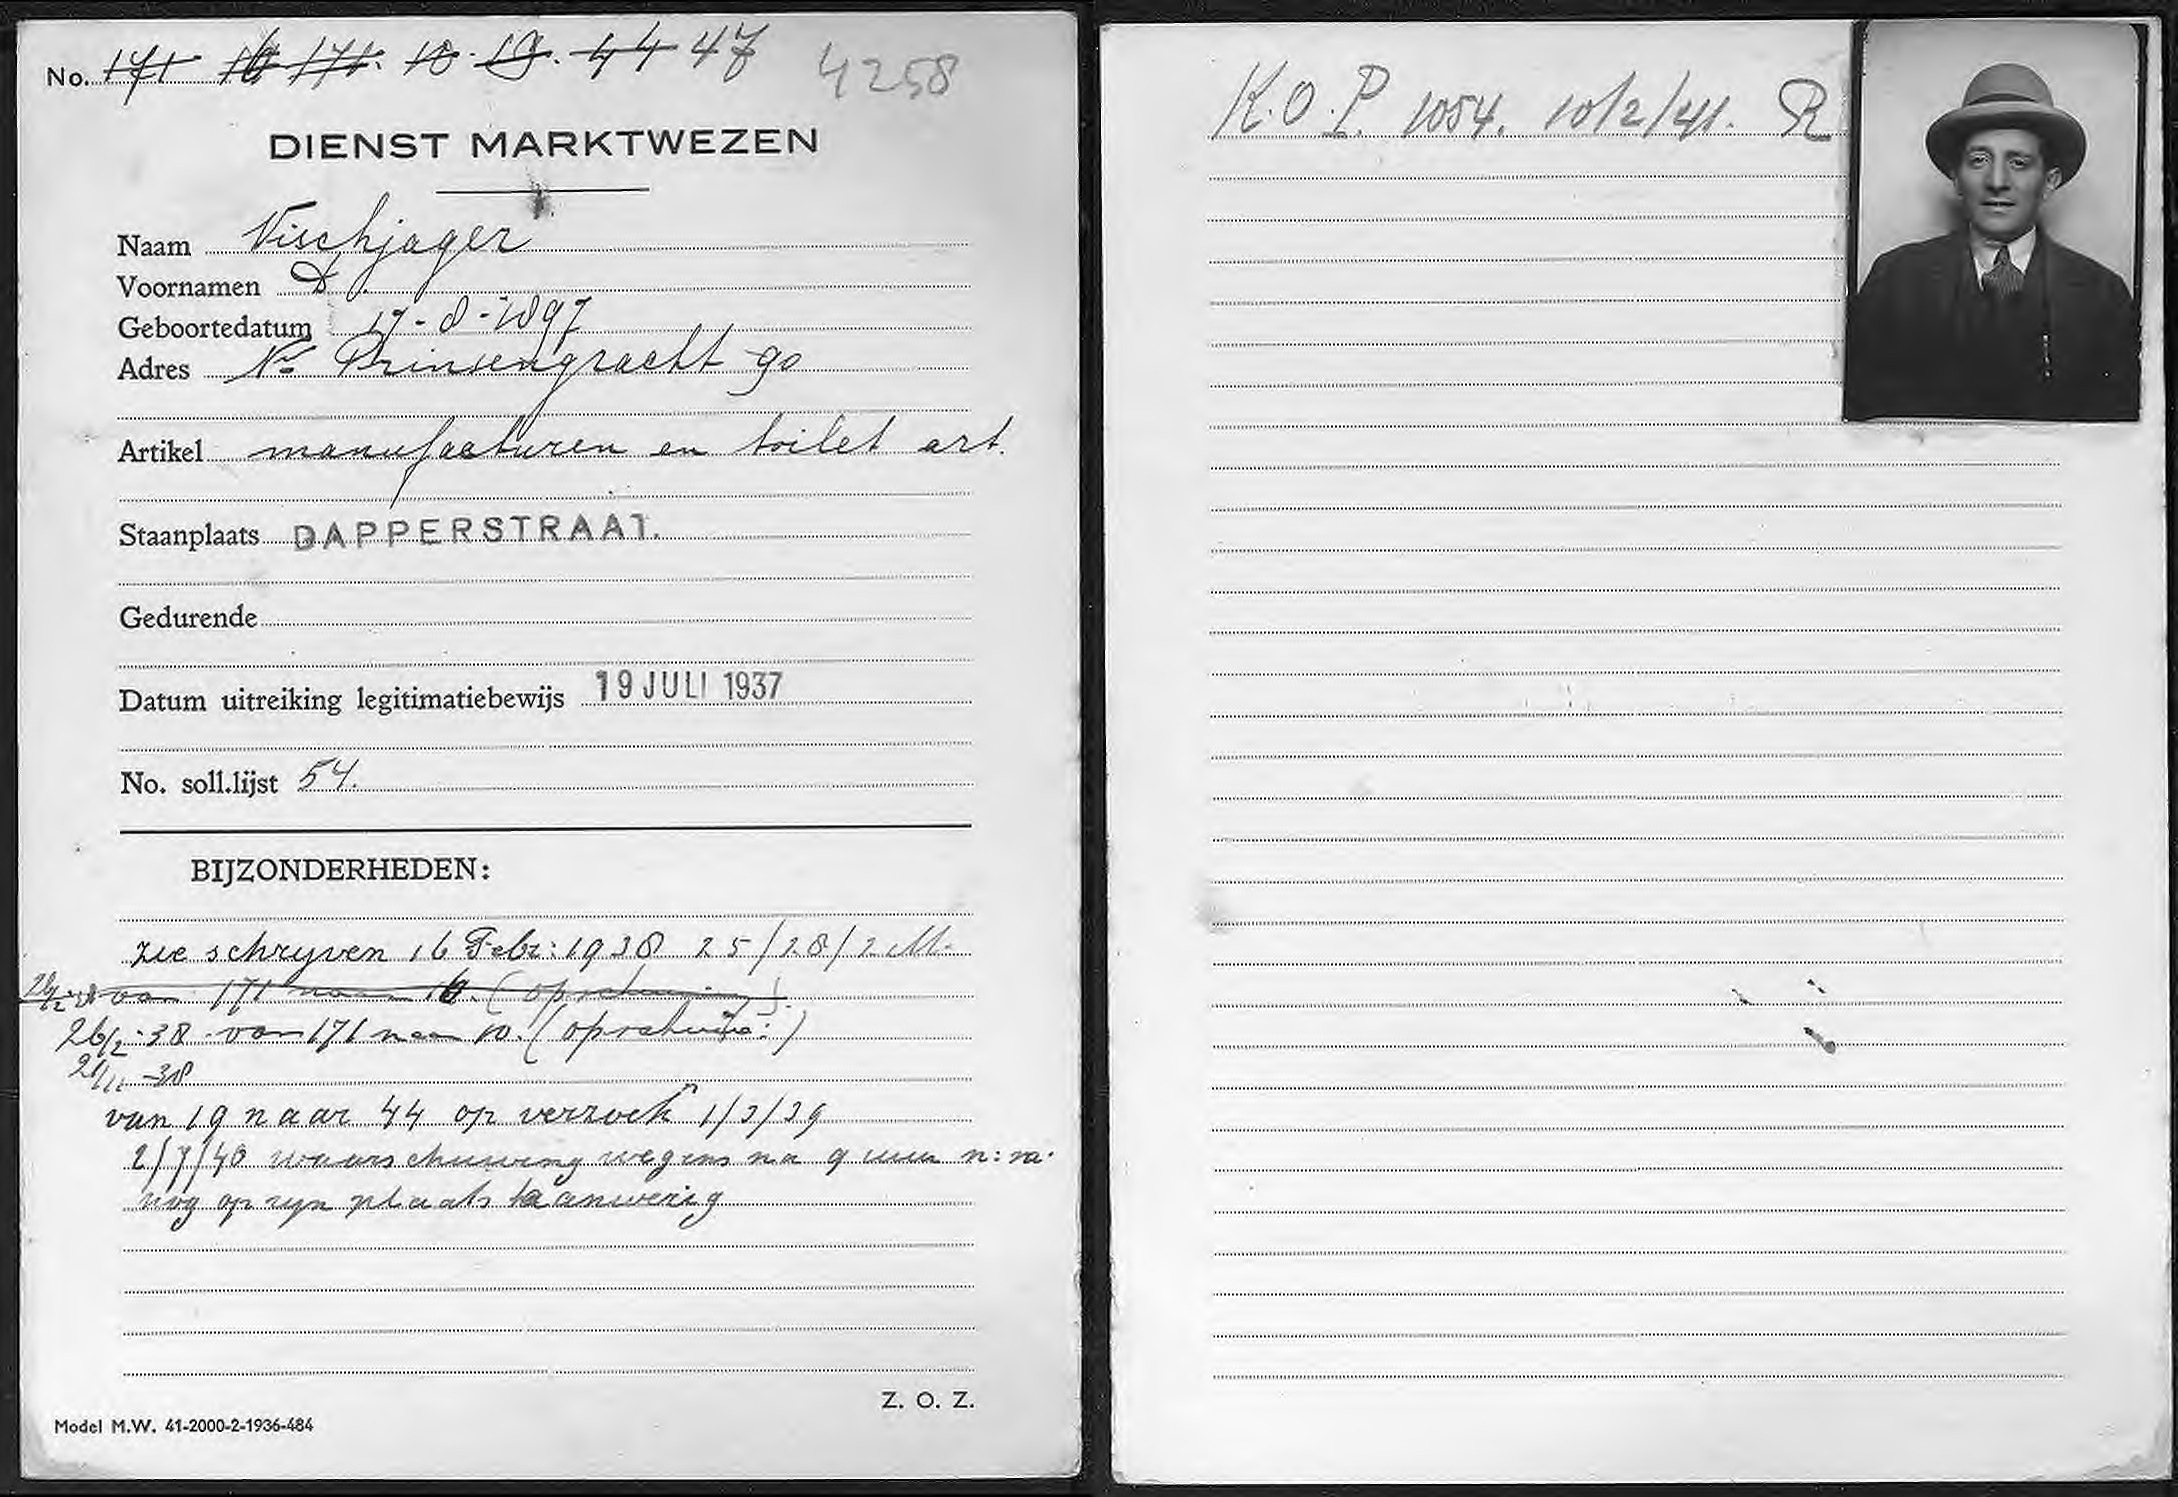 No. 171 16 171. 10. 19. 44 47 4258
DIENST MARKTWEZEN
Naam Vischjager
Voornamen A.
Geboortedatum 17-8-1897
Adres Nw Prinsengracht 90
Artikel manufacturen en toilet art.
Staanplaats DAPPERSTRAAT.
Gedurende
Datum uitreiking legitimatiebewijs 19 JULI 1937
No. soll.lijst 54.
BIJZONDERHEDEN:
zie schrijven 16 Febr: 1938 25/28/2 M.
van 171 naar 10. (opschuiving).
26/2-38 van 171 naar 10. (opschuiv:)
21/11-38
van 19 naar 44 op verzoek 1/3/39
2/7/40 waarschuwing wegens na 9 uur n:m.
nog op zijn plaats aanwezig
Z. O. Z.
Model M.W. 41-2000-2-1936-484
K.O.P. 1054. 10/2/41. R